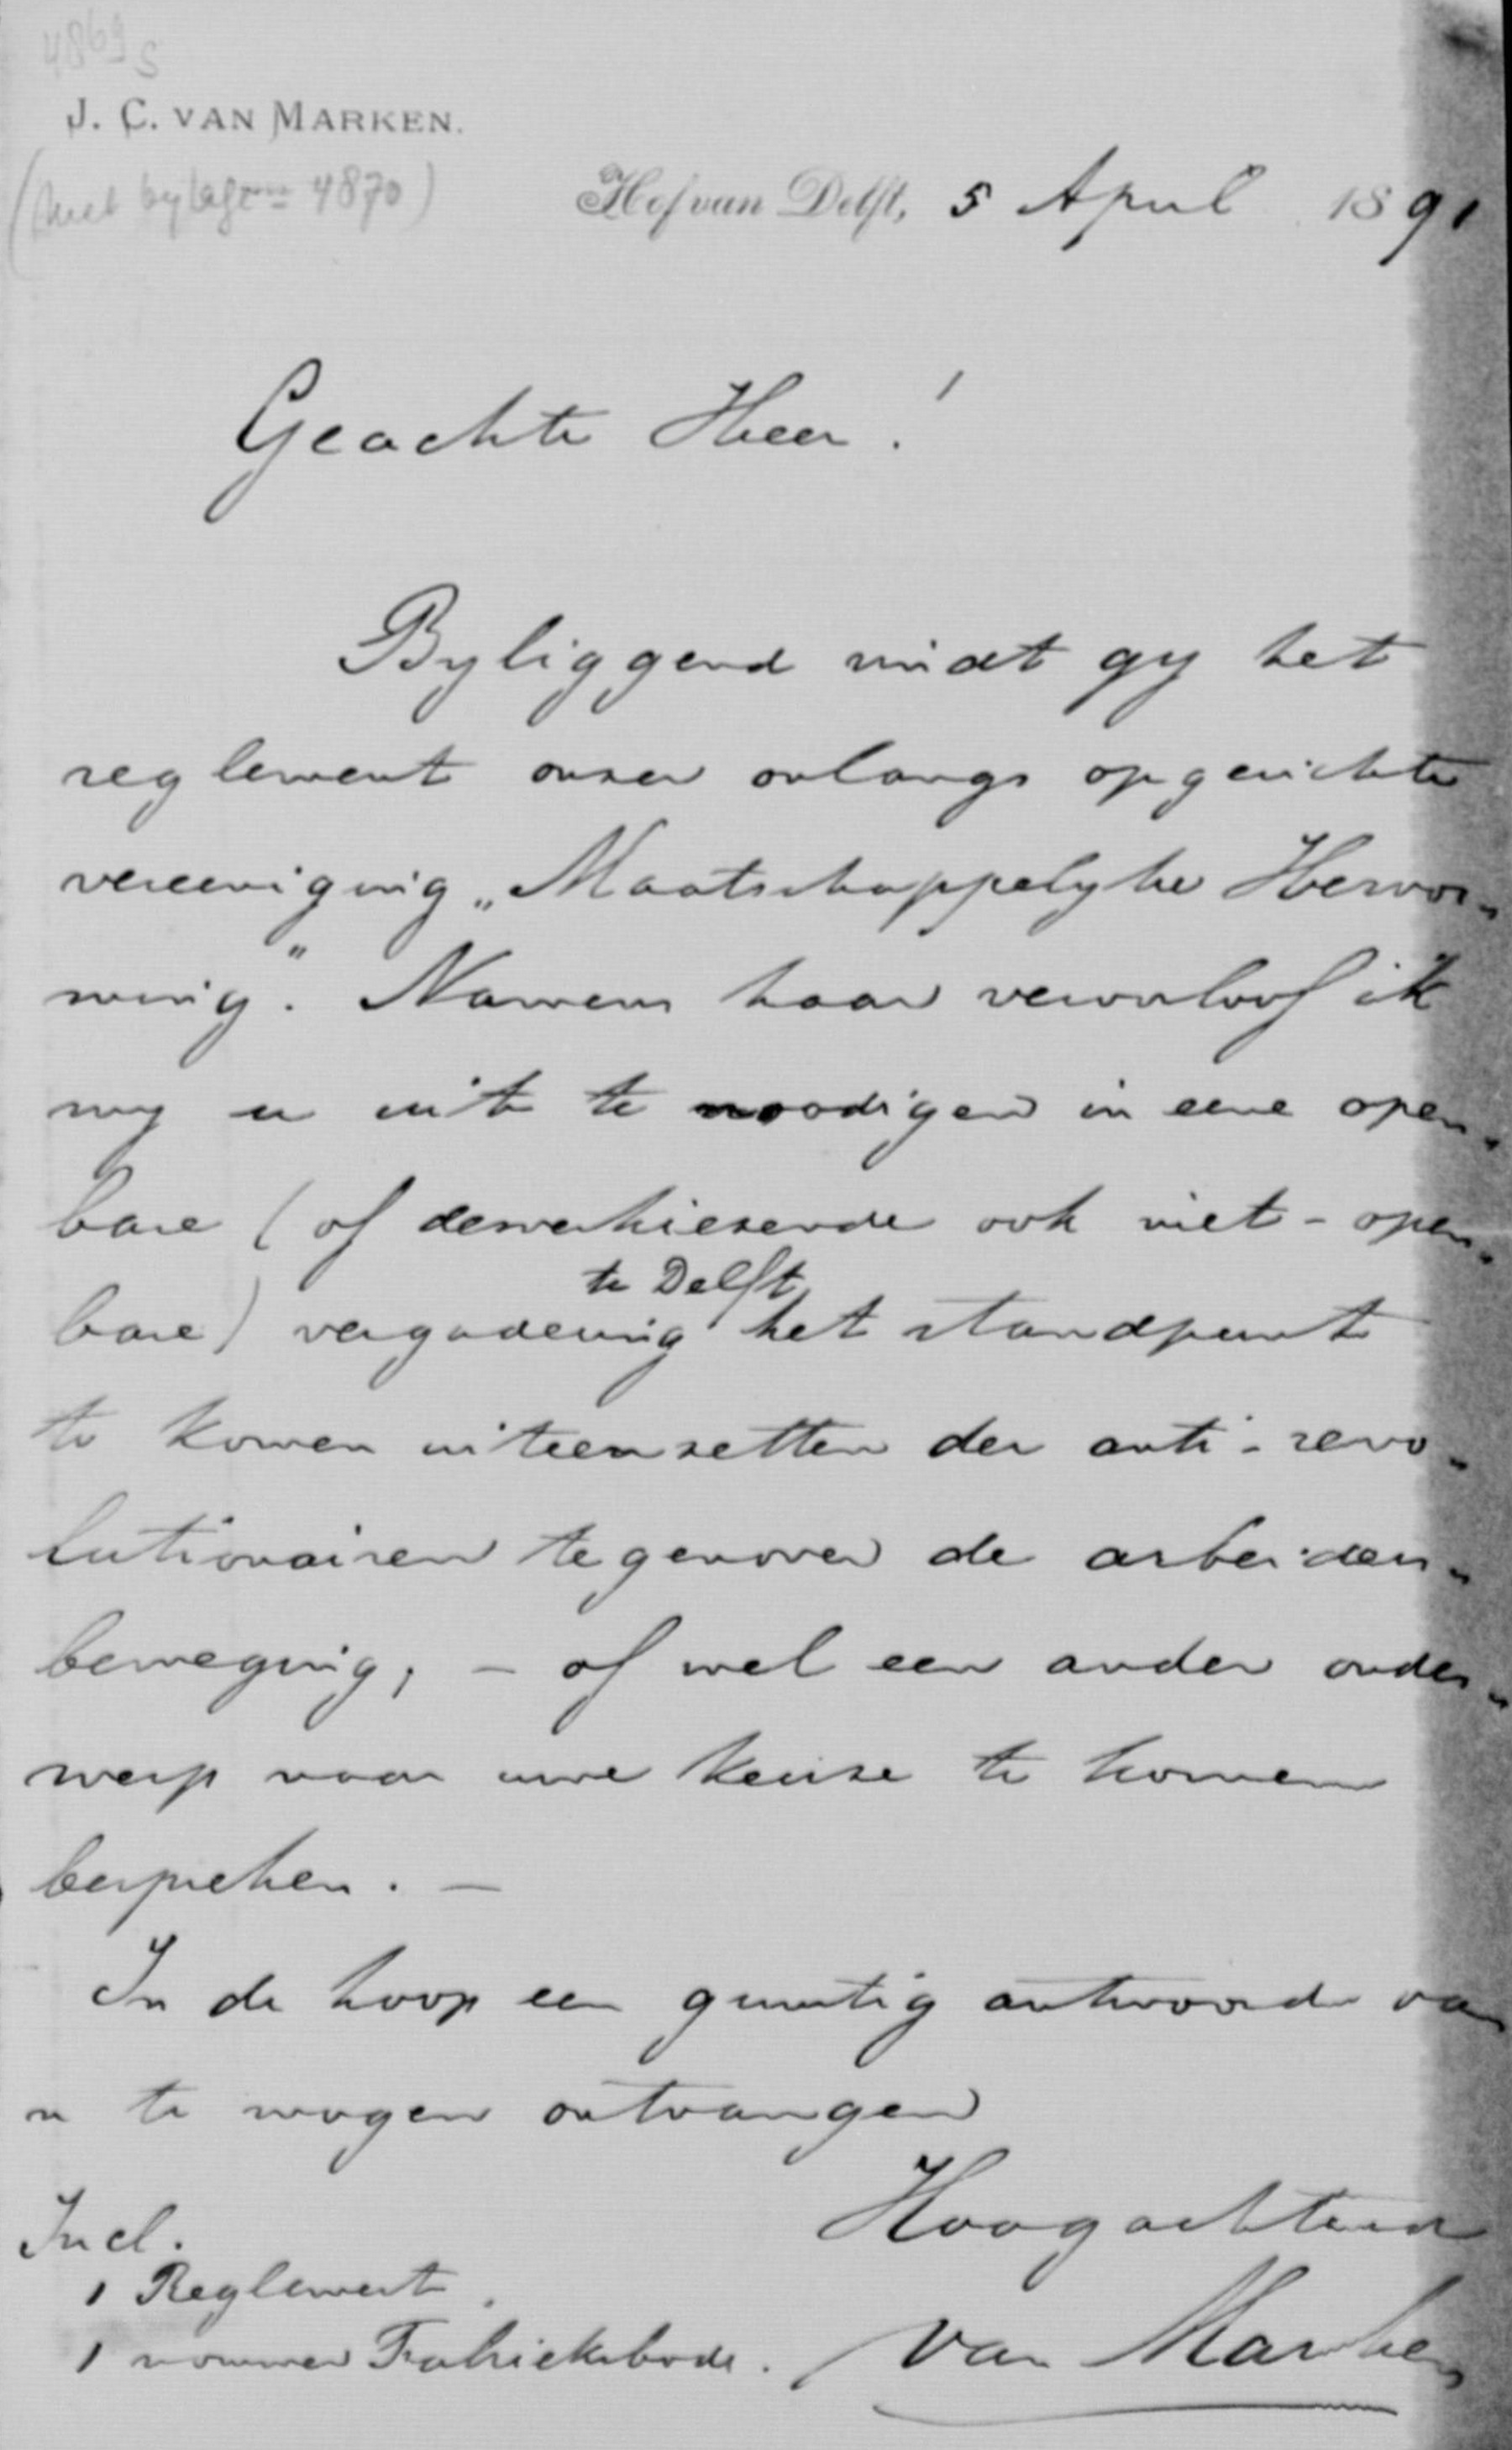 4869 S
J. C. VAN MARKEN.
(Met bylage 4870)
Hof van Delft, 5 April 1891
Geachte Heer!
Byliggend vindt gy het
reglement onzer onlangs opgerichte
vereeniging „Maatschappelyke Hervor-
ming". Namens haar veroorloof ik
my u uit te noodigen in eene open-
bare (of desverkiezende ook niet-open-
te Delft
bare) vergadering het standpunt
te komen uiteenzetten der anti-revo-
lutionairen tegenover de arbeiders-
beweging; – of wel een ander onder-
werp naar uwe keuze te komen
bespreken. –
In de hoop een gunstig antwoord van
u te mogen ontvangen
Hoogachtend
van Marken
Incl.
1 Reglement
1 nommer Fabrieksbode.